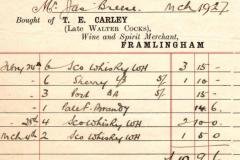 Mr Jas Breese. Mch 1927.
Bought of T. E. CARLEY
(Late WALTER COCKS),
Wine and Spirit Merchant,
FRAMLINGHAM
Febry 24th 6 Sco Whisky WH 3 15 -
" 6 Sherry - 15 -
" 3 Port - 10 -
" 1 Pale Brandy 14.6
" 28th 4 Sco Whisky WH 2 10 0
Mch 4th 2 Sco Whisky WH 1 5 0